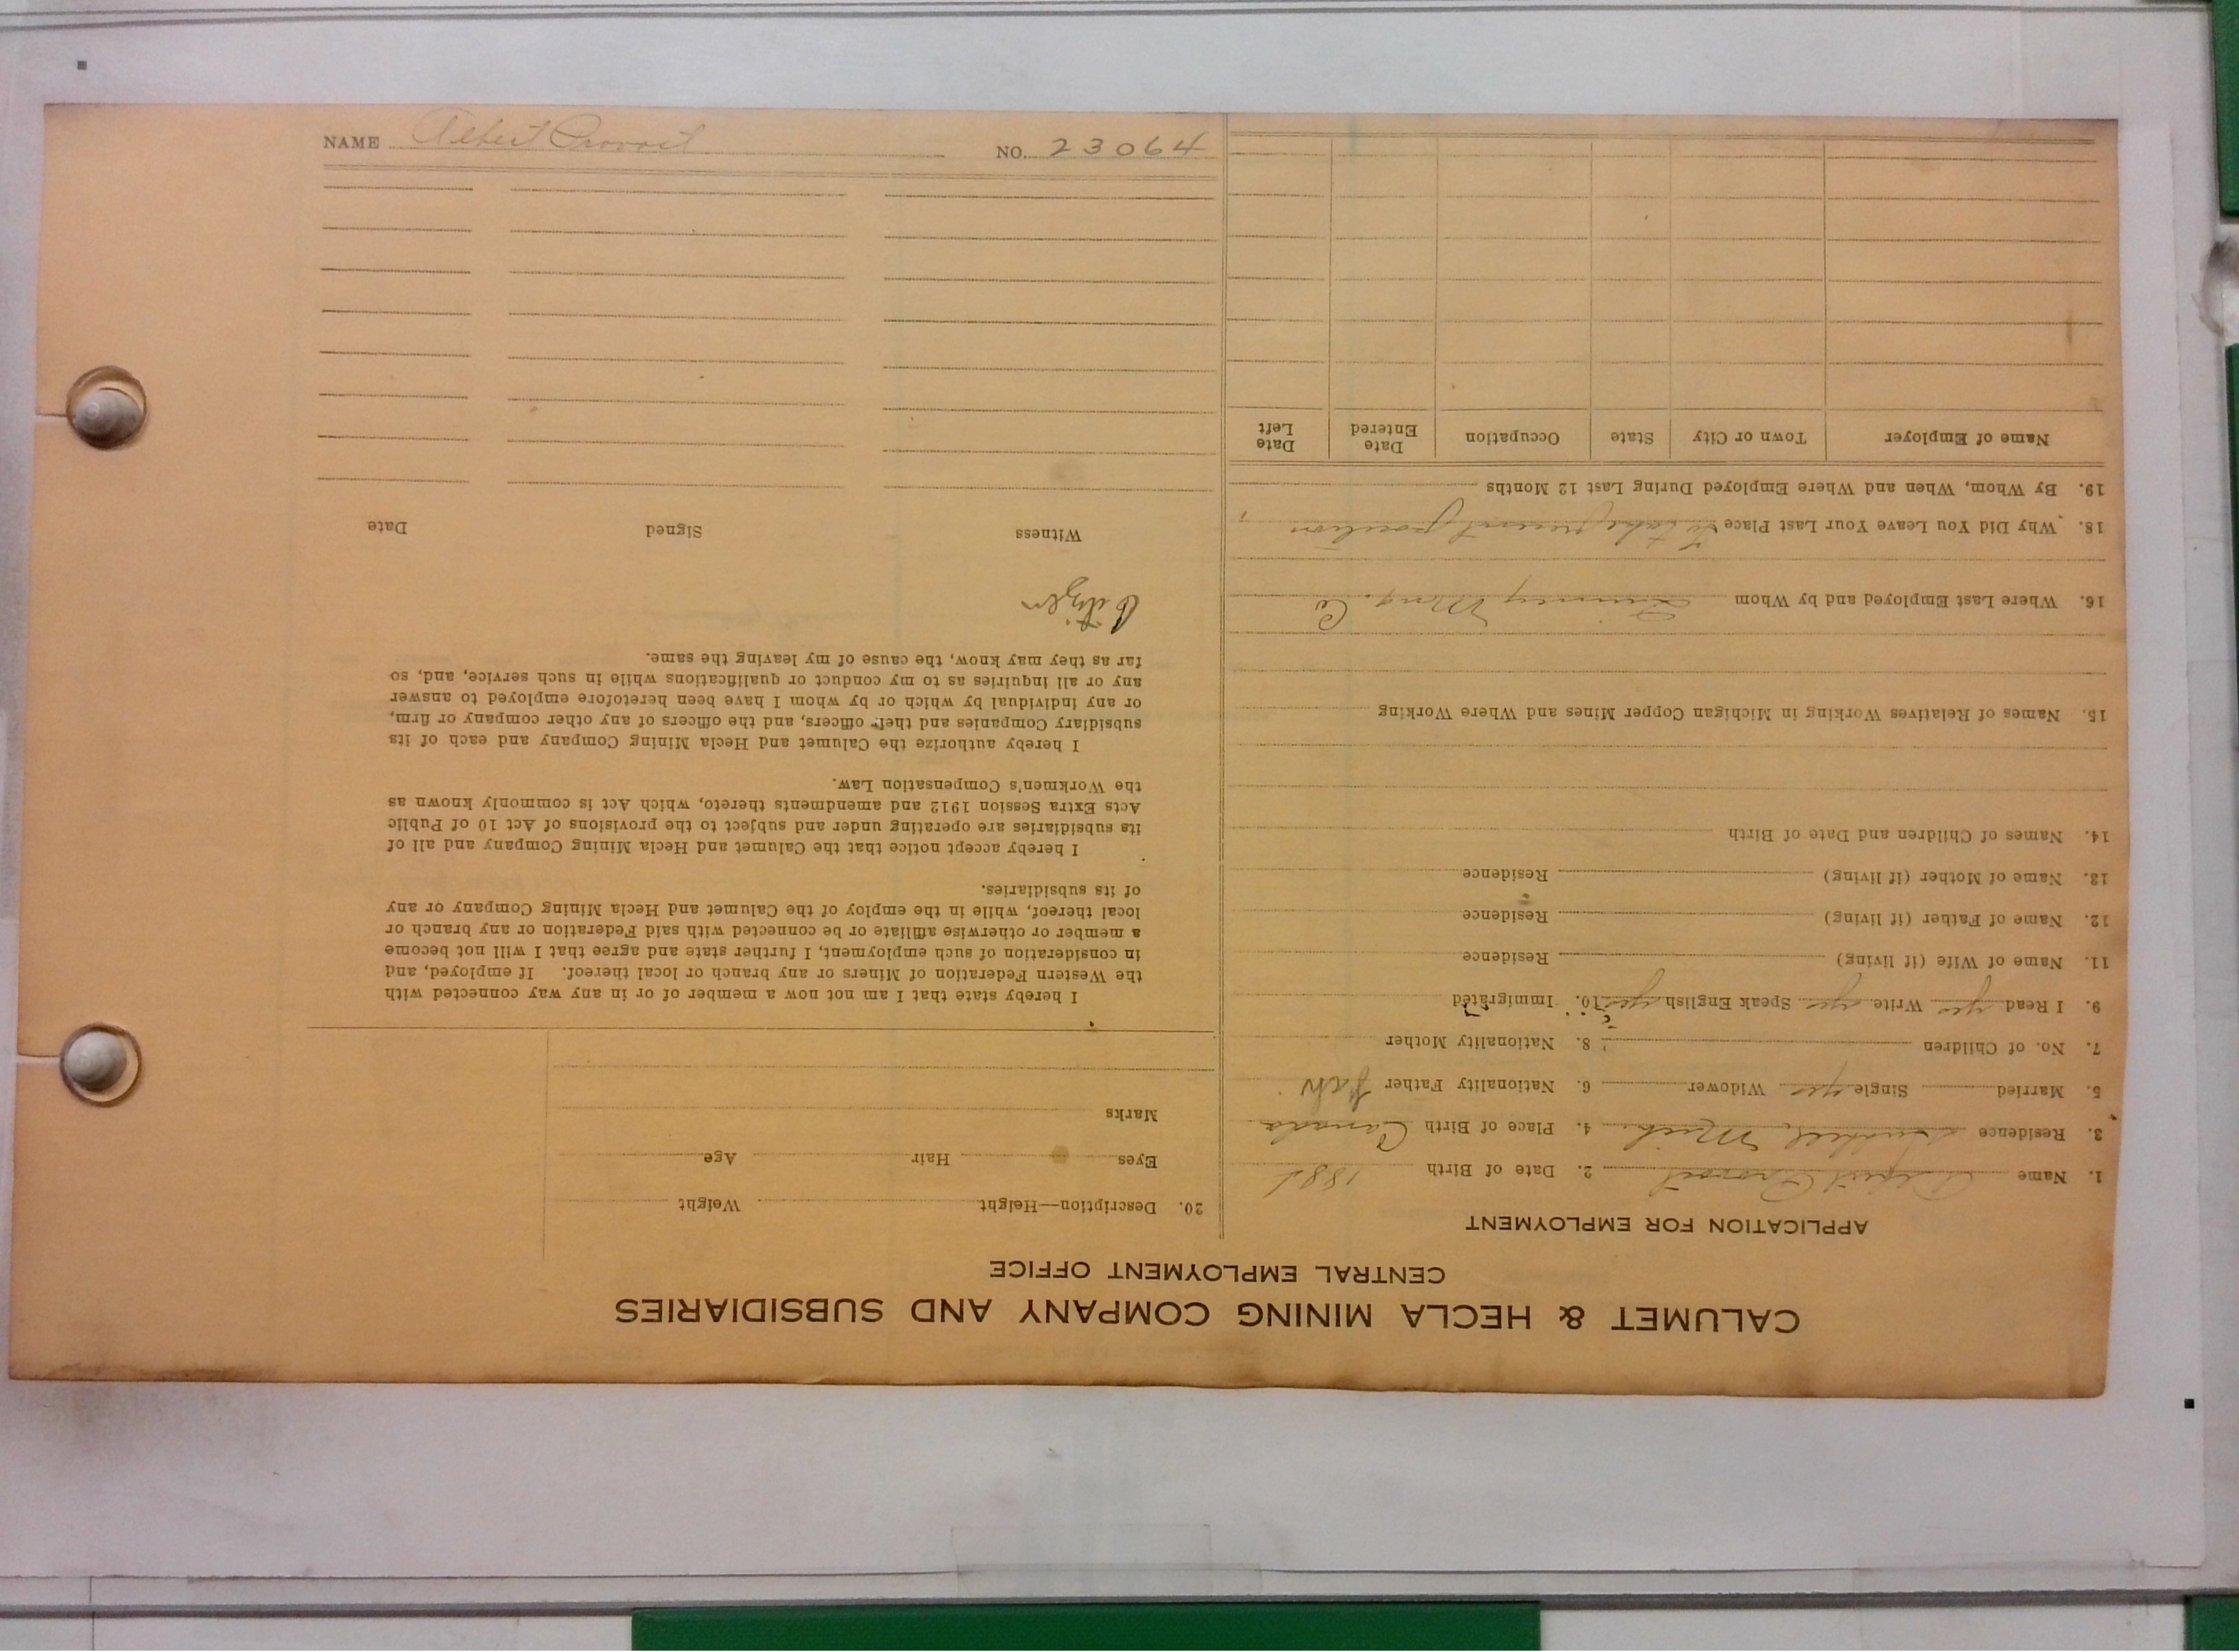 CALUMET & HECLA MINING COMPANY AND SUBSIDIARIES
CENTRAL EMPLOYMENT OFFICE
APPLICATION FOR EMPLOYMENT
1. Name Albert Provost 2. Date of Birth 1881
3. Residence Mich. 4. Place of Birth Canada
5. Married Single yes Widower 6. Nationality Father
7. No. of Children 8. Nationality Mother
9. I Read yes Write yes Speak English yes 10. Immigrated
11. Name of Wife (if living) Residence
12. Name of Father (if living) Residence
13. Name of Mother (if living) Residence
14. Names of Children and Date of Birth
15. Names of Relatives Working in Michigan Copper Mines and Where Working
16. Where Last Employed and by Whom Quincy Mng. Co
18. Why Did You Leave Your Last Place To take present position
19. By Whom, When and Where Employed During Last 12 Months
Name of Employer Town or City State Occupation Date Entered Date Left
20. Description—Height Weight
Eyes Hair Age
Marks
I hereby state that I am not now a member of or in any way connected with
the Western Federation of Miners or any branch or local thereof. If employed, and
in consideration of such employment, I further state and agree that I will not become
a member or otherwise affiliate or be connected with said Federation or any branch or
local thereof, while in the employ of the Calumet and Hecla Mining Company or any
of its subsidiaries.
I hereby accept notice that the Calumet and Hecla Mining Company and all of
its subsidiaries are operating under and subject to the provisions of Act 10 of Public
Acts Extra Session 1912 and amendments thereto, which Act is commonly known as
the Workmen's Compensation Law.
I hereby authorize the Calumet and Hecla Mining Company and each of its
subsidiary Companies and their officers, and the officers of any other company or firm,
or any individual by which or by whom I have been heretofore employed to answer
any or all inquiries as to my conduct or qualifications while in such service, and, so
far as they may know, the cause of my leaving the same.
Citizen
Witness Signed Date
NAME Albert Provost NO. 23064